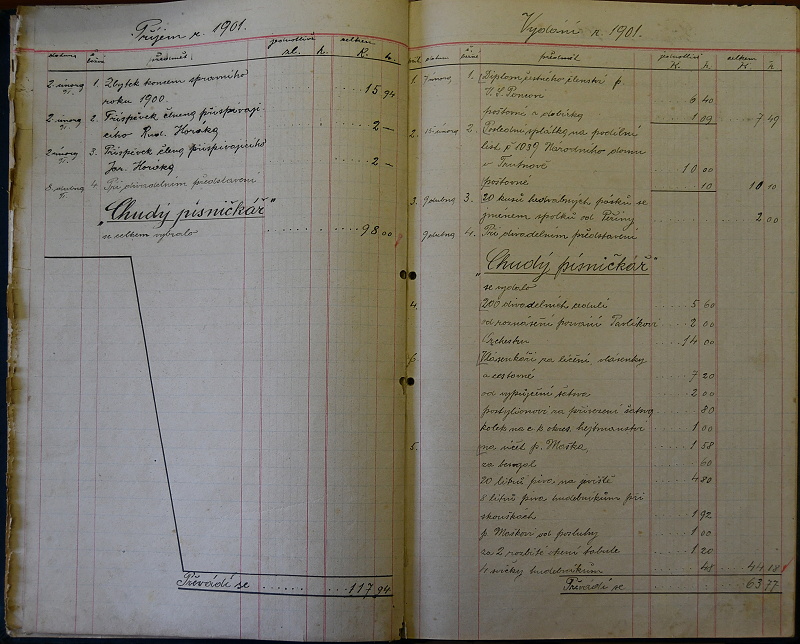 Příjem r. 1901.
datum číslo předmět jednotlivě zl. h. celkem K. h.
2. února 1. Zbytek koncem správního
roku 1900. 15 94
2. února 2. Příspěvek člena přispívají-
cího Rud. Horáka 2 —
2. února 3. Příspěvek člena přispívajícího
Jar. Horáka 2 —
8. dubna 4. Při divadelním představení
„Chudý písničkář"
se celkem vybralo 98 00
Převádí se 117 94
Vydání r. 1901.
datum číslo předmět jednotlivě K. h. celkem K. h.
1. 7 února 1. Diplom čestného členství p.
6 40
poštovné z dobírky 1 09 7 49
2. 15 února 2. Poslední splátka na podílní
list č 1039 Národního domu
v Trutnově 10 00
poštovné 10 10 10
3. 9 dubna 3. 20 kusů hedvábných pásků se
jmenem spolku od Peřiny 2 00
9 dubna 4. Při divadelním představení
„Chudý písničkář"
se vydalo
4. 200 divadelních cedulí 5 60
od roznášení pozvání Pavlíkovi 2 00
Orchestru 14 00
Vlásenkáři za líčení, vlásenky
a cestovné 7 20
od vypůjčení šatstva 2 00
postylionovi za přivezení šatstva 80
kolek na c. k. okres. hejtmanství 1 00
5. na účet p. Maška 1 58
za bengál 60
20 litrů piva na jeviště 4 80
8 litrů piva hudebníkům při
zkouškách 1 92
p. Maškovi od posluhy 1 00
za 2 rozbité okení tabule 1 20
svíčky hudebníkům 48 44.18
Převádí se 63 77